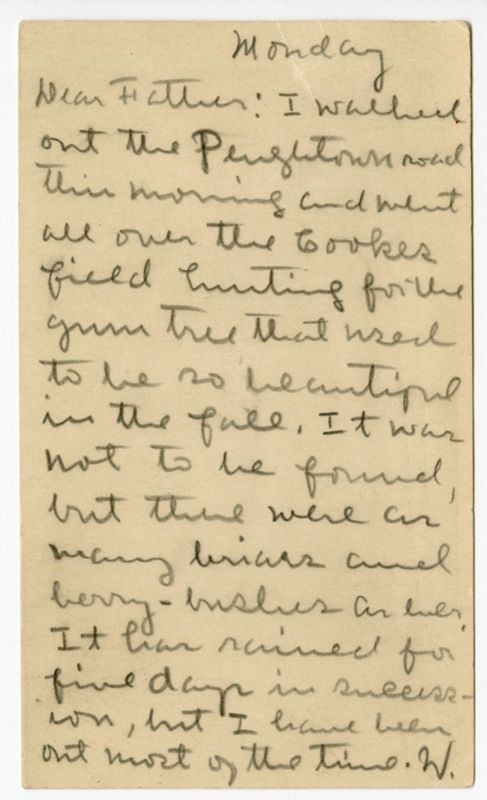 Monday
Dear Father: I walked
out the Pughtown road
this morning and went
all over the Cookes
field hunting for the
gum tree that used
to be so beautiful
in the fall. It was
not to be found,
but there were as
many briars and
berry-bushes as ever.
It has rained for
five days in success-
ion, but I have been
out most of the time. W.